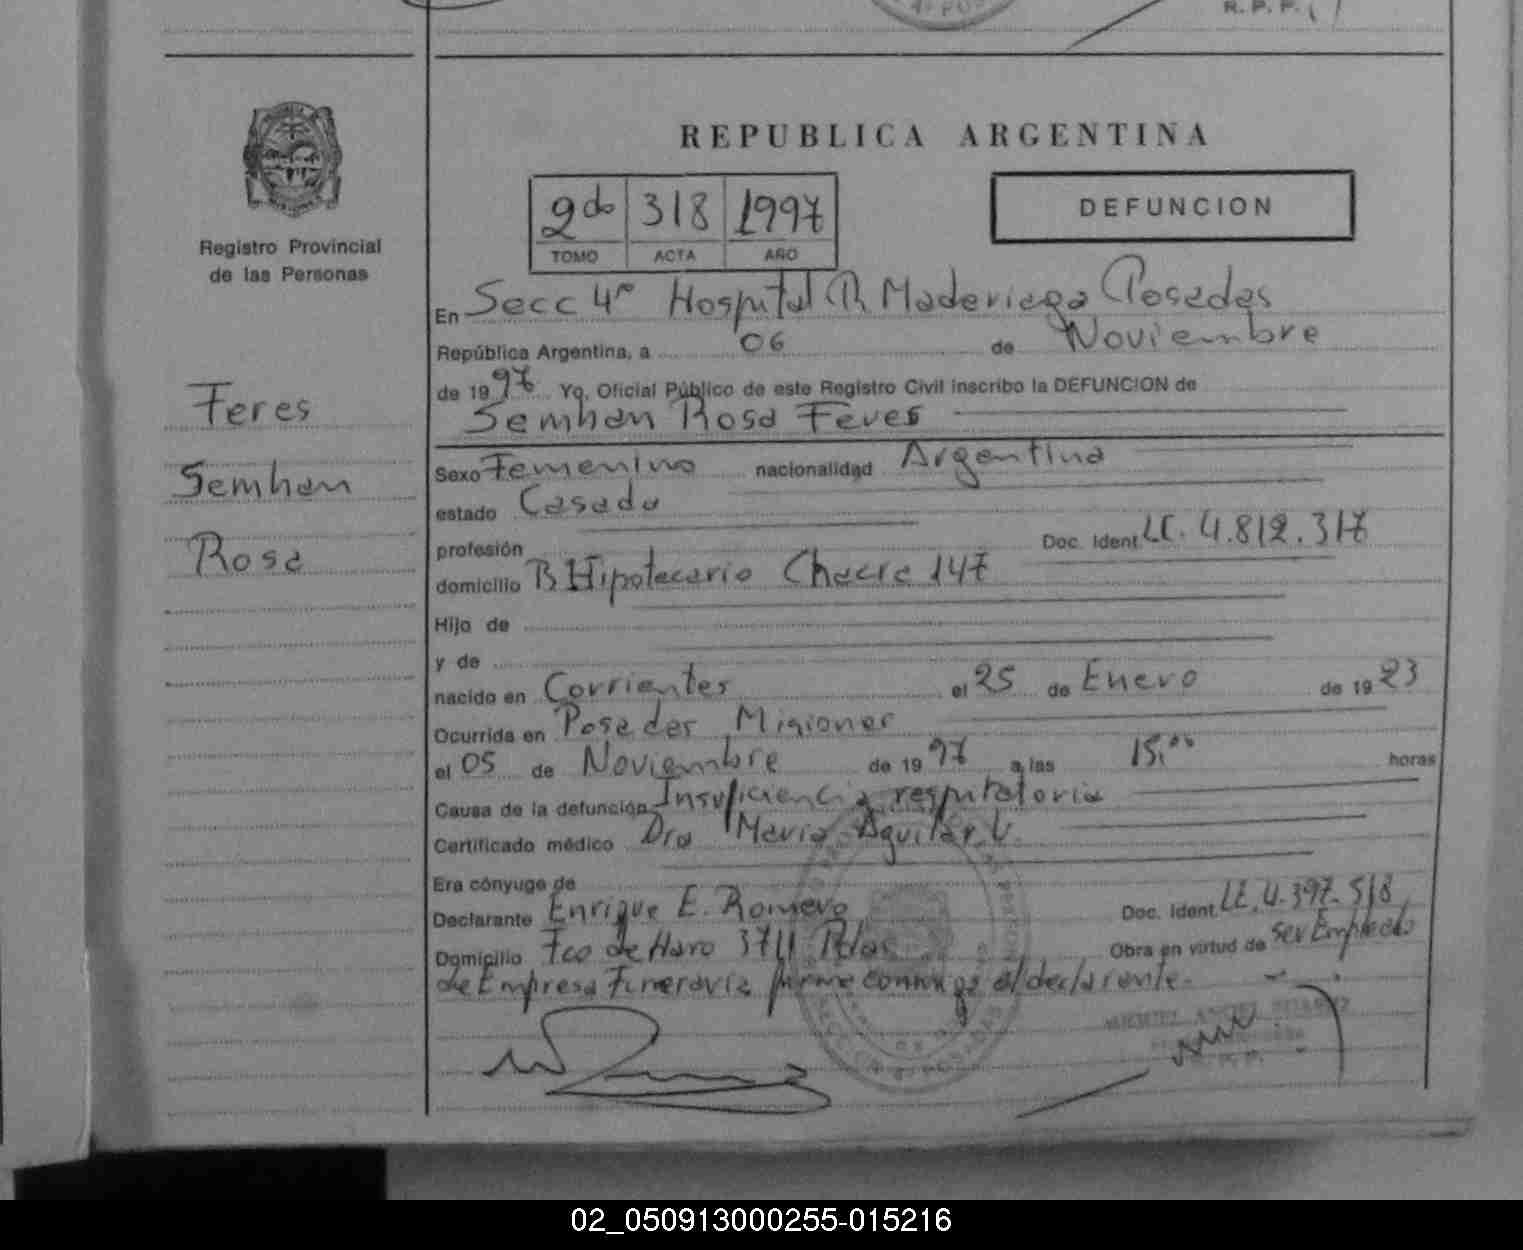 R. P. P.
REPUBLICA ARGENTINA
2do 318 1997
TOMO ACTA AÑO
DEFUNCION
Registro Provincial
de las Personas
Feres
Semhan
Rosa
En Secc 4ª Hospital R. Maderiaga Posadas
República Argentina, a 06 de Noviembre
de 1997 Yo, Oficial Público de este Registro Civil inscribo la DEFUNCION de
Semhan Rosa Feres
Sexo Femenino nacionalidad Argentina
estado Casada
profesión Doc. Ident. LC. 4.812.317
domicilio B Hipotecario Chacra 147
Hijo de
y de
nacido en Corrientes el 25 de Enero de 1923
Ocurrida en Posadas Misiones
el 05 de Noviembre de 1997 a las 15,00 horas
Causa de la defunción Insuficiencia respiratoria
Certificado médico Dra Maria Aguilar. V.
Era cónyuge de
Declarante Enrique E. Romero Doc. Ident. LE. 4.397.518
Domicilio Fco de Haro 3711 Pdas Obra en virtud de ser Empleado
de Empresa Funeraria firma conmigo el declarante.
02_050913000255-015216